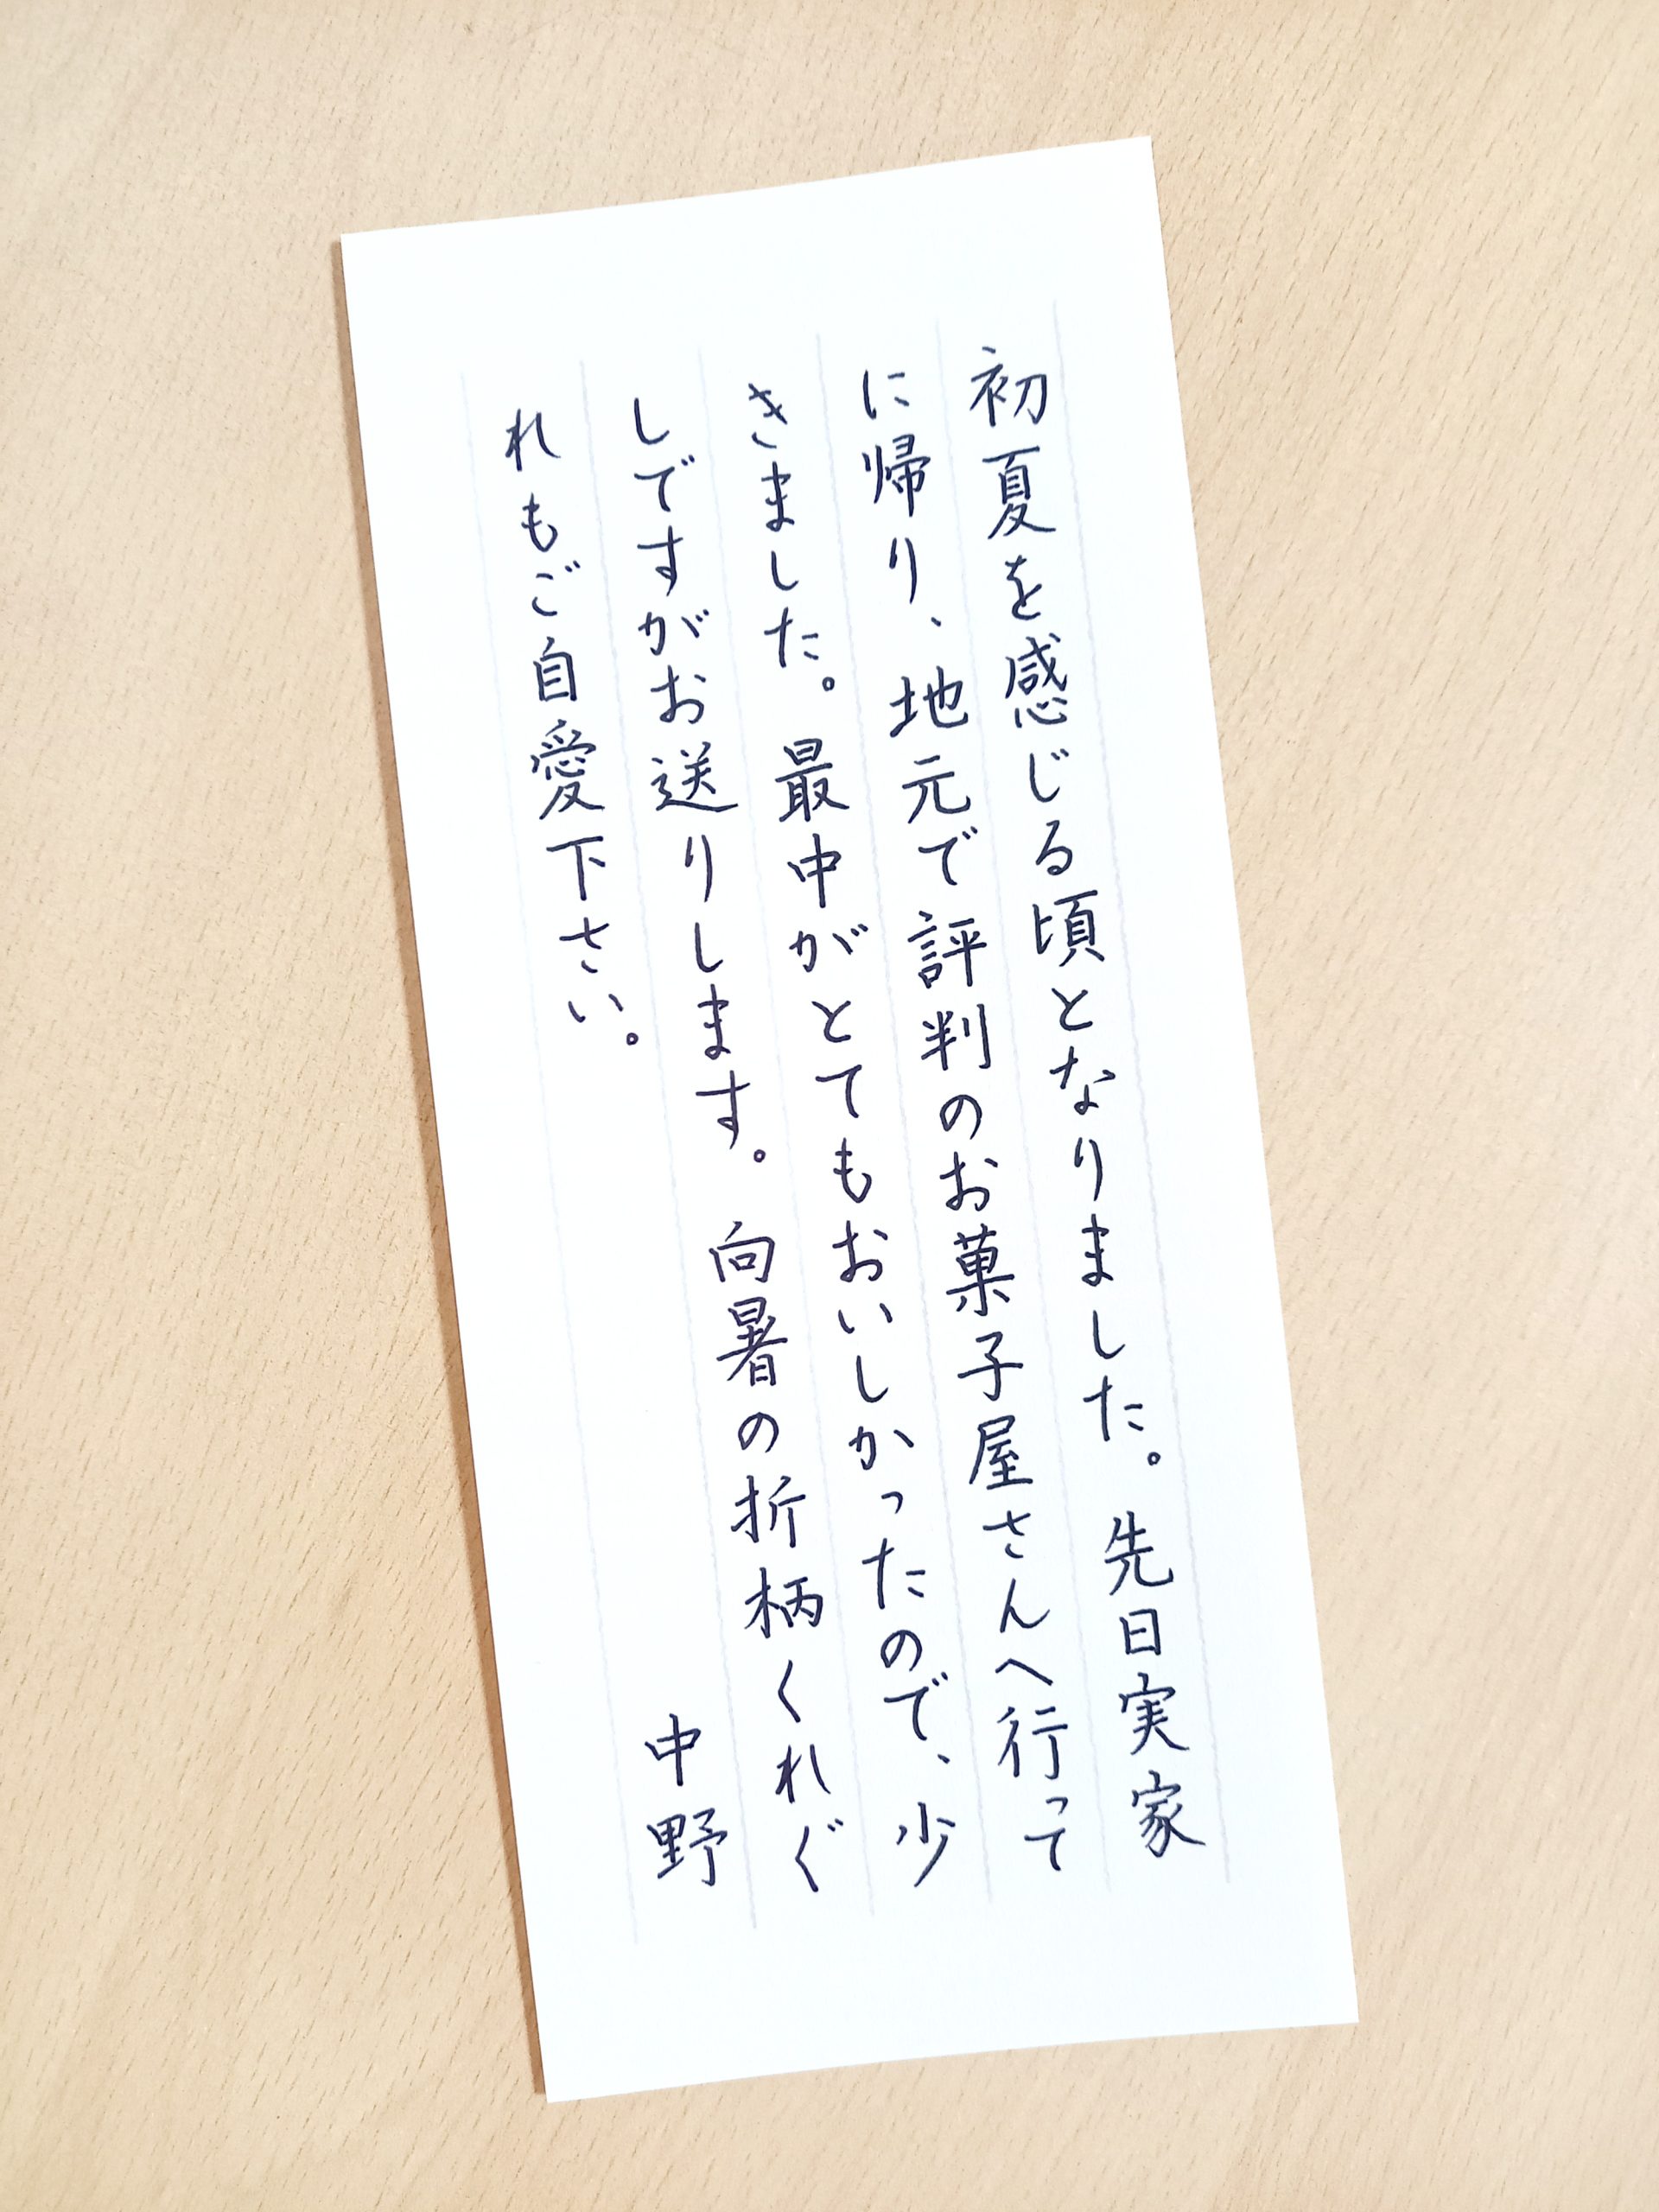 初夏を感じる頃となりました。先日実家
に帰り、地元で評判のお菓子屋さんへ行って
きました。最中がとてもおいしかったので、少
しですがお送りします。向暑の折柄くれぐ
れもご自愛下さい。
中野